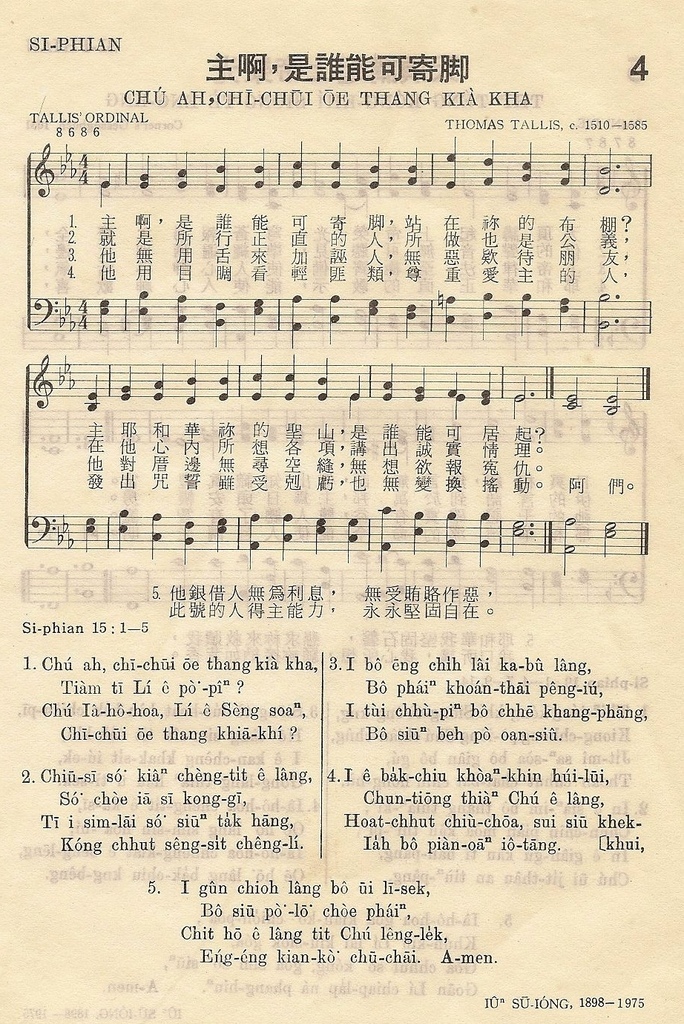 SI-PHIAN
主啊，是誰能可寄脚
4
CHÚ AH, CHĪ-CHŪI ŌE THANG KIÀ KHA
TALLIS' ORDINAL
8 6 8 6
THOMAS TALLIS, c. 1510–1585
1. 主啊，是誰能可寄脚，站在祢的布棚？
2. 就是所行正直的人，所做也是公義，
3. 他無用舌來加誣人，無惡欵待朋友，
4. 他用目睭看輕匪類，尊重愛主的人，
主耶和華祢的聖山，是誰能可居起？
在他心內所想各項，講出誠實情理。
他對厝邊無尋空縫，也無想欲報冤仇。
發出咒誓雖受剋虧，也無變換搖動。 阿們。
5. 他銀借人無爲利息， 無受賄賂作惡，
此號的人得主能力， 永永堅固自在。
Si-phian 15 : 1—5
1. Chú ah, chī-chūi ōe thang kià kha,
Tiàm tī Lí ê pò͘-pîⁿ ?
Chú Iâ-hô-hoa, Lí ê Sèng soaⁿ,
Chī-chūi ōe thang khiā-khí ?
2. Chiū-sī só͘ kiâⁿ chèng-ti̍t ê lâng,
Só͘ chòe iā sī kong-gī,
Tī i sim-lāi só͘ siūⁿ ta̍k hāng,
Kóng chhut sêng-si̍t chêng-lí.
3. I bô ēng chih lâi ka-bû lâng,
Bô pháiⁿ khoán-thāi pêng-iú,
I tùi chhù-piⁿ bô chhē khang-phāng,
Bô siūⁿ beh pò oan-siû.
4. I ê ba̍k-chiu khòaⁿ-khin húi-lūi,
Chun-tiōng thiàⁿ Chú ê lâng,
Hoat-chhut chiù-chōa, sui siū khek-
Ia̍h bô piàn-oāⁿ iô-tāng. [khui,
5. I gûn chioh lâng bô ūi lī-sek,
Bô siū pò͘-lō͘ chòe pháiⁿ,
Chit hō ê lâng tit Chú lêng-le̍k,
Eńg-éng kian-kò͘ chū-chāi. A-men.
IÛⁿ SŪ-IÓNG, 1898–1975